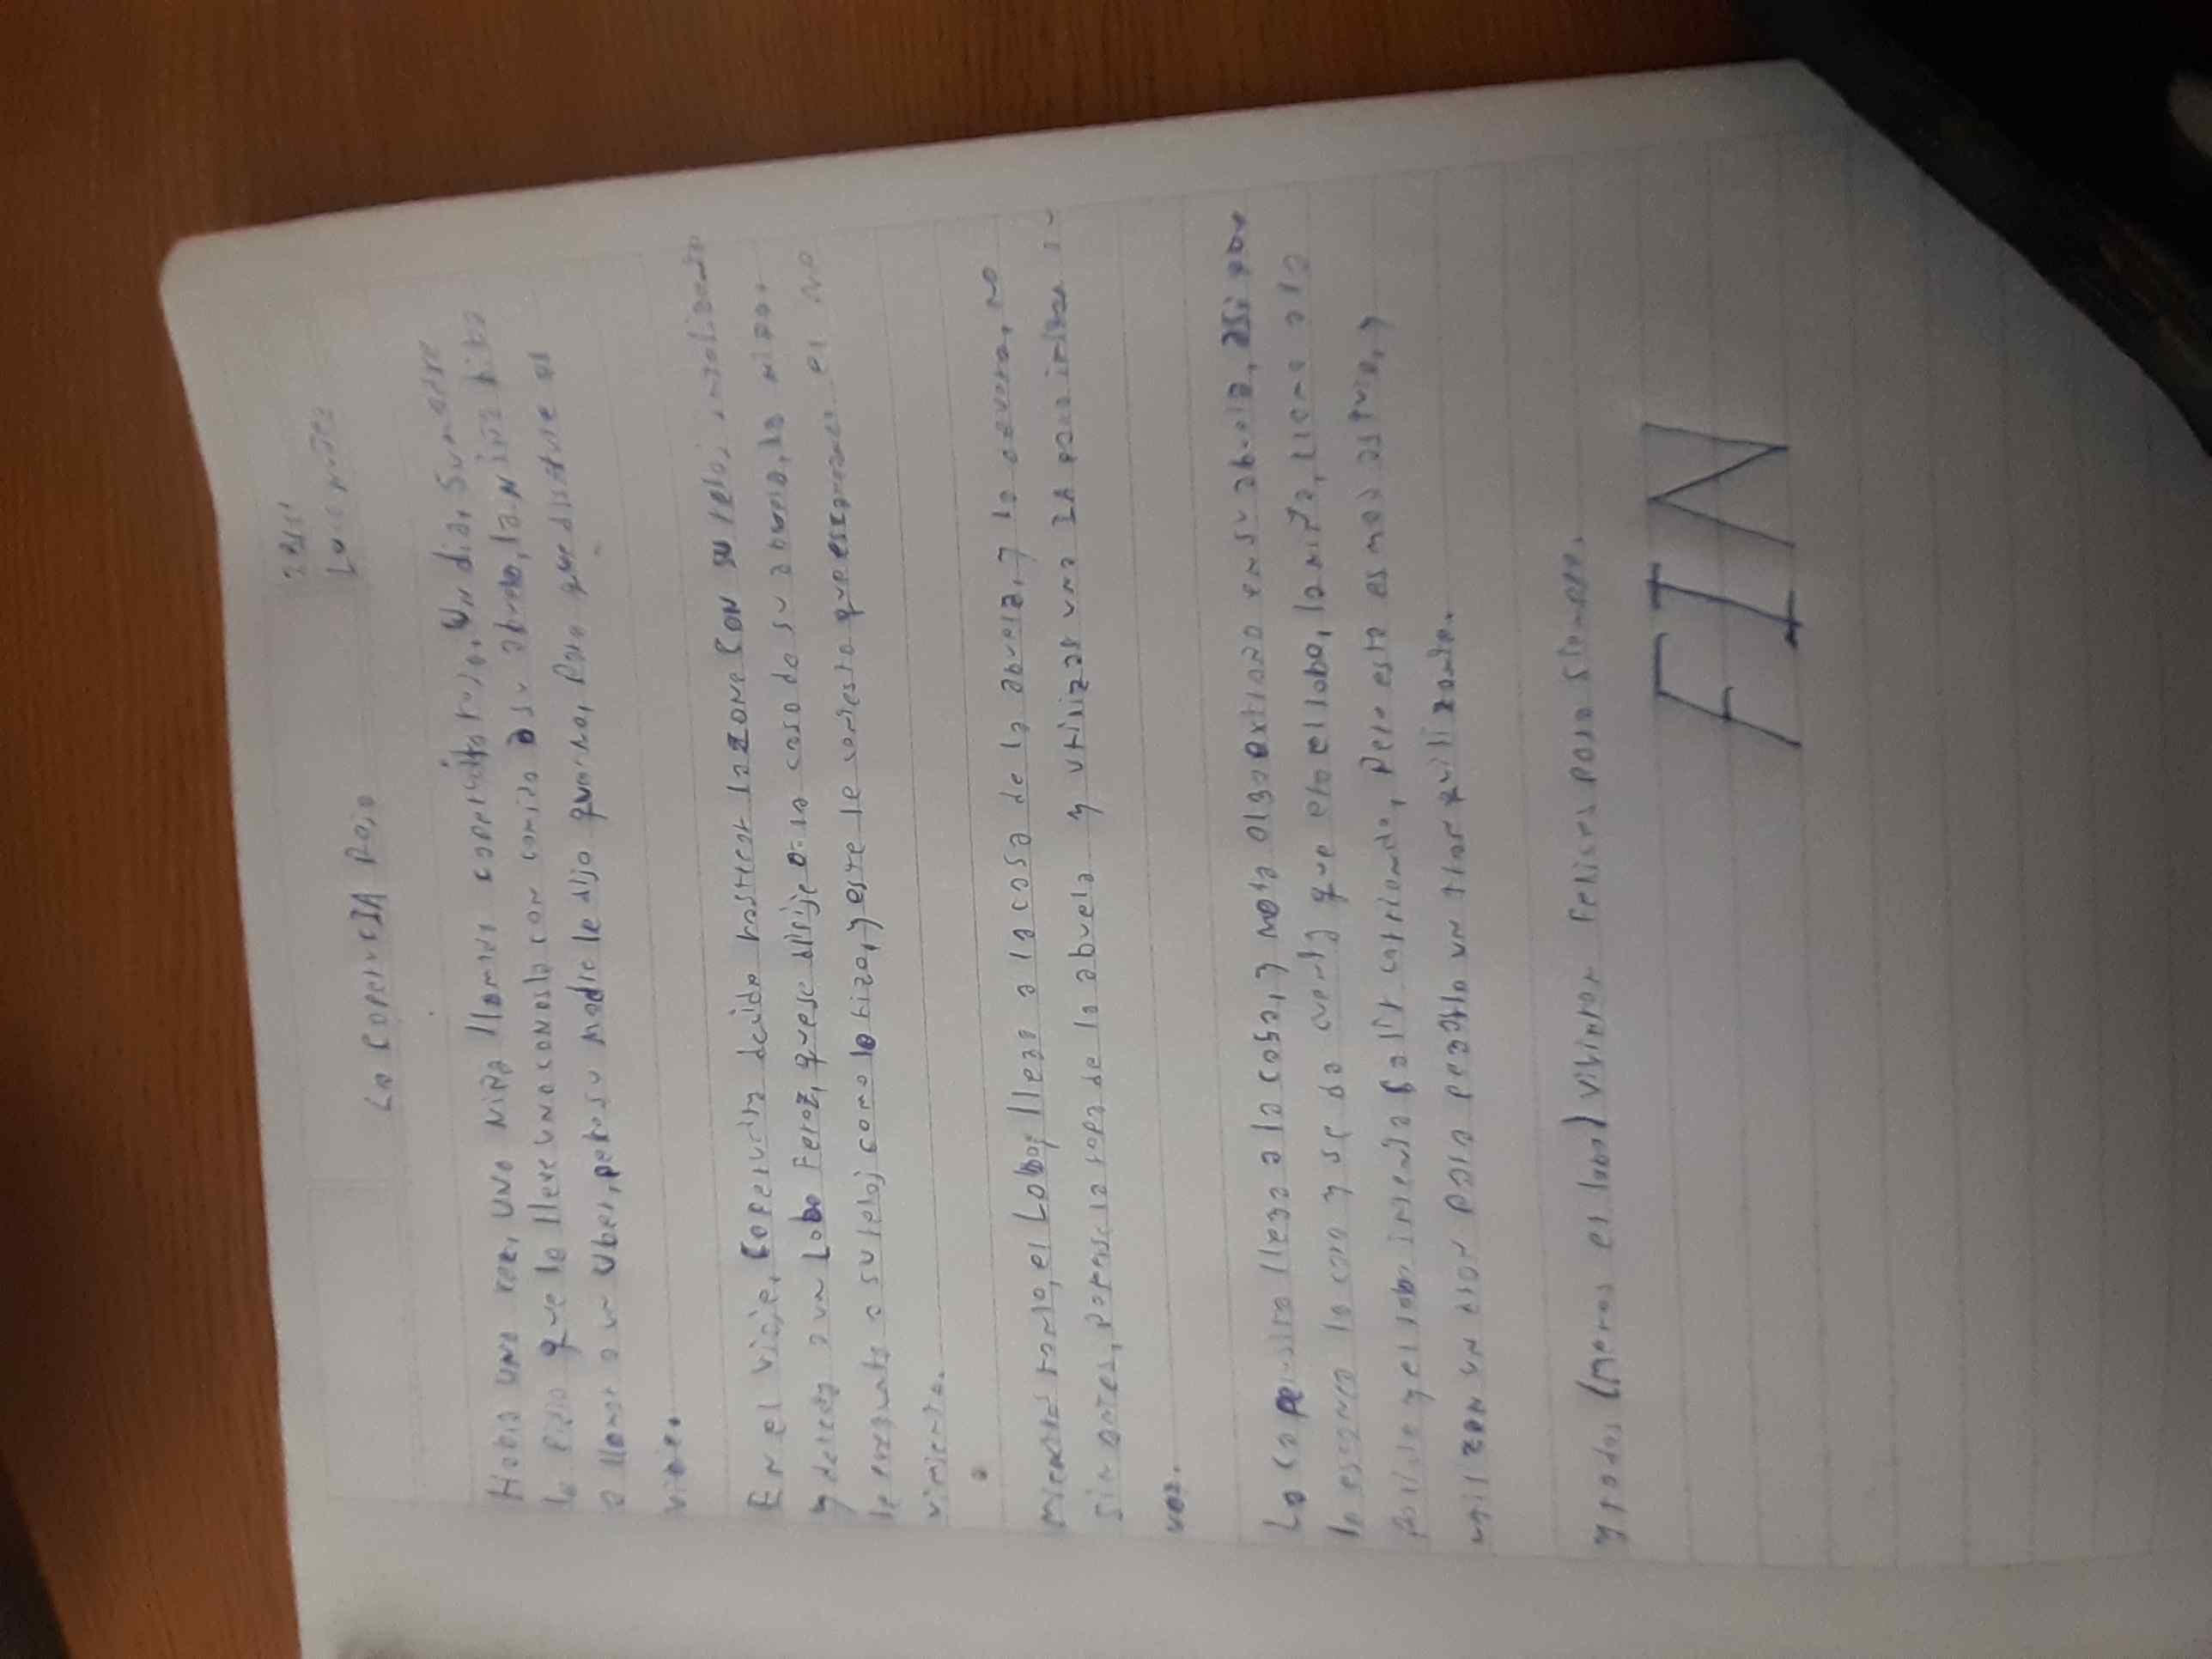 La CaperucIA Roja
Habia una vez, una niña llamada caperucita roja, Un dia, Su madre
le pidio que le lleve una canasta con comida a su abuela, la niña iba
a llamar a un Uber, pero su madre le dijo que no, Para que disfrute el
viaje.
En el viaje, Caperucita decide rastrear la zona CON su reloj inteligente
y detecta a un Lobo Feroz, que se dirije a la casa de su abuela, la niña
le pregunta a su reloj como lo hizo, y este le contesta que escaneando el
vimiento.
Mientras tanto, el Lobo, llega a la casa de la abuela, y la devora, no
sin antes, ponerse la ropa de la abuela y utilizar una IA para imitar su
voz.
La caperucita llega a la casa, y nota algo extraño en su abuela, asi que
le escanea la cara y se da cuenta que era el lobo, la niña, llama a la
policia y el lobo intenta salir corriendo, Pero esta es mas astuta, y
utilizan un dron para pegarle un tranquilizante.
y todos (menos el lobo) vivieron felices para siempre.
FIN